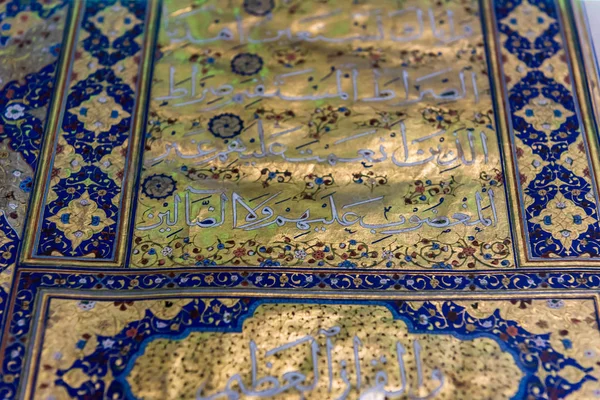 وَاِيَّاكَ نَسْتَعِينُ اِهْدِنَا
الصِّرَاطَ الْمُسْتَقِيمَ صِرَاطَ
الَّذِينَ اَنْعَمْتَ عَلَيْهِمْ غَيْرِ
الْمَغْضُوبِ عَلَيْهِمْ وَلَا الضَّآلِّينَ
والقرآن العظيم